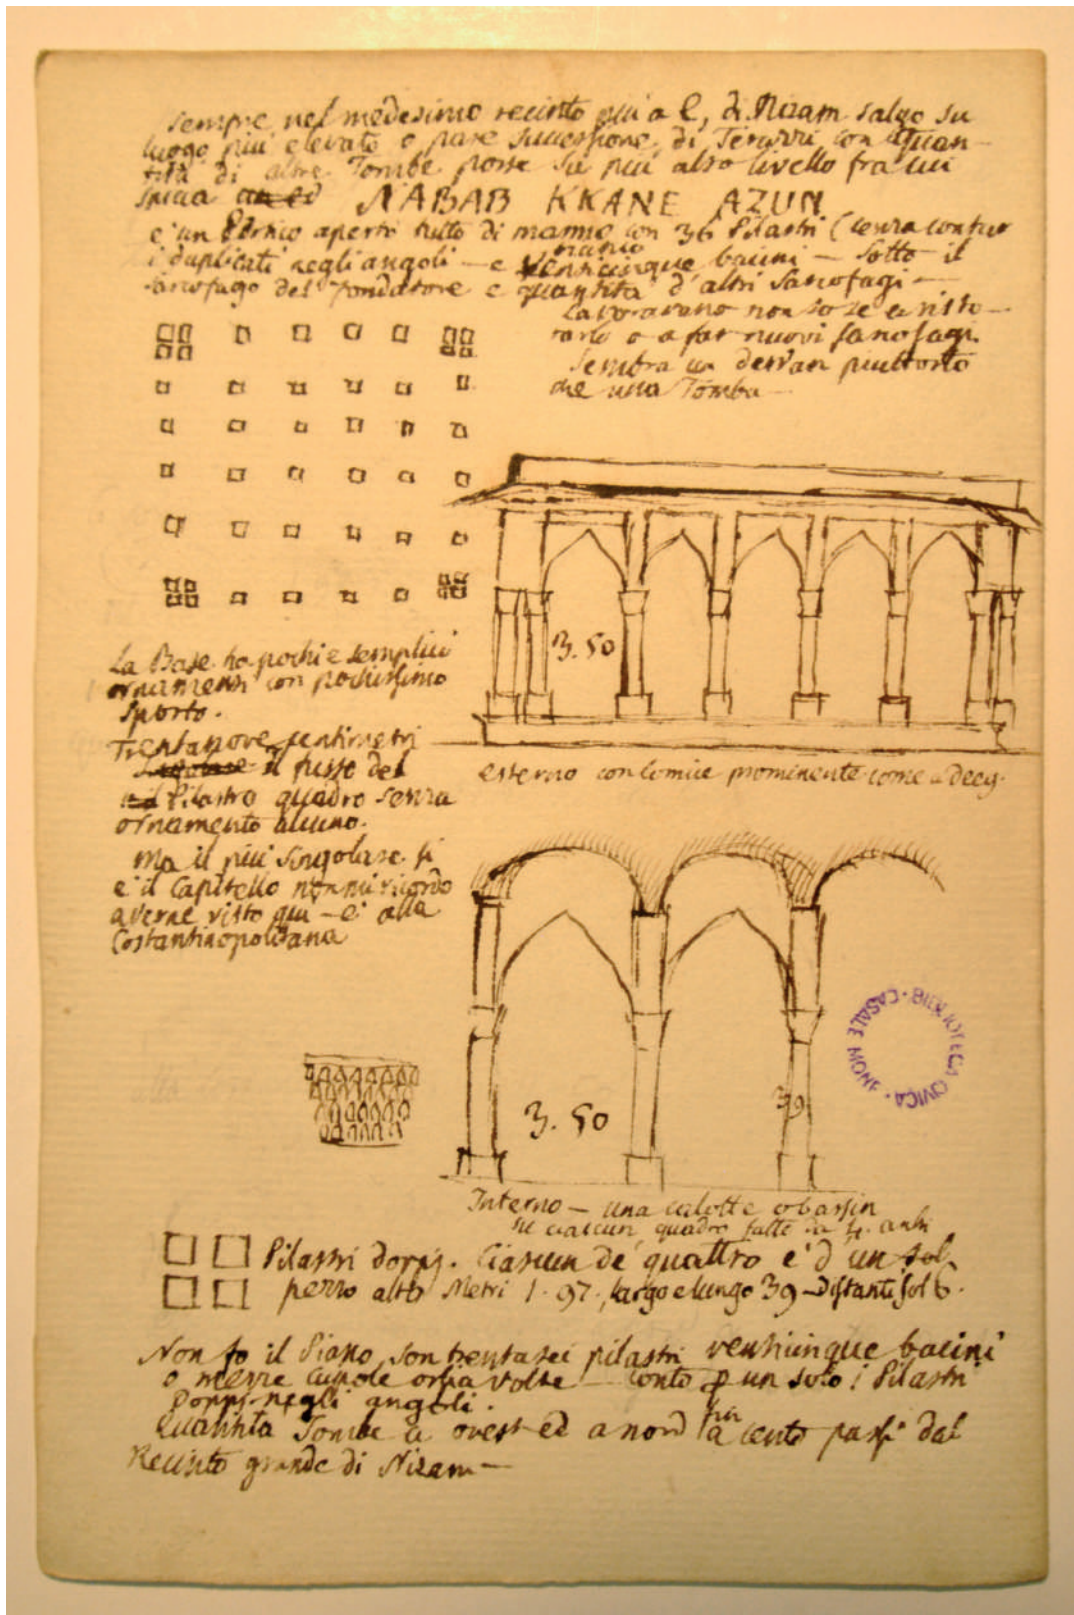 sempre nel medesimo recinto più a E, di Nizam salgo su
luogo più elevato o pare successione di Terazzi con quan-
tità di altre Tombe posse su più alto livello fra cui
spicca
NABAB KKANE AZUN
e' un Portico aperto tutto di marmo con 36 Pilastri (senza contar
i duplicati negli angoli — e venticinque bacini — sotto il
sarcofago del fondatore e quantità d'altri sarcofagi —
Lavoravano non so se a risto-
rarlo o a far nuovi sarcofagi.
Sembra un dervan piuttosto
che una Tomba —
La Base ha pochi e semplici
ornamenti con pochissimo
sporto.
Trentanove centimetri
il fusto del
Pilastro quadro senza
ornamento alcuno.
Ma il più singolare si
e' il Capitello non mi ricordo
averne visto qui — e' alla
Costantinopolitana
3.50
esterno con Cornice prominente come a Deeg.
3.50
39
Interno — una calotte o bassin
su ciascun quadro fatte da 4. archi
Pilastri doppj. Ciascun de' quattro e' d'un sol
pezzo alto Metri 1.97, largo e lungo 39 — distanti sol 6.
Non so il Piano, son trentasei pilastri venticinque bacini
o mezze cupole ossia volte — conto p un solo i Pilastri
Doppj negli angoli.
Quantità Tombe a ovest ed a nord fin a cento passi dal
Recinto grande di Nizam —
BIBLIOTECA CIVICA · CASALE MONF ·